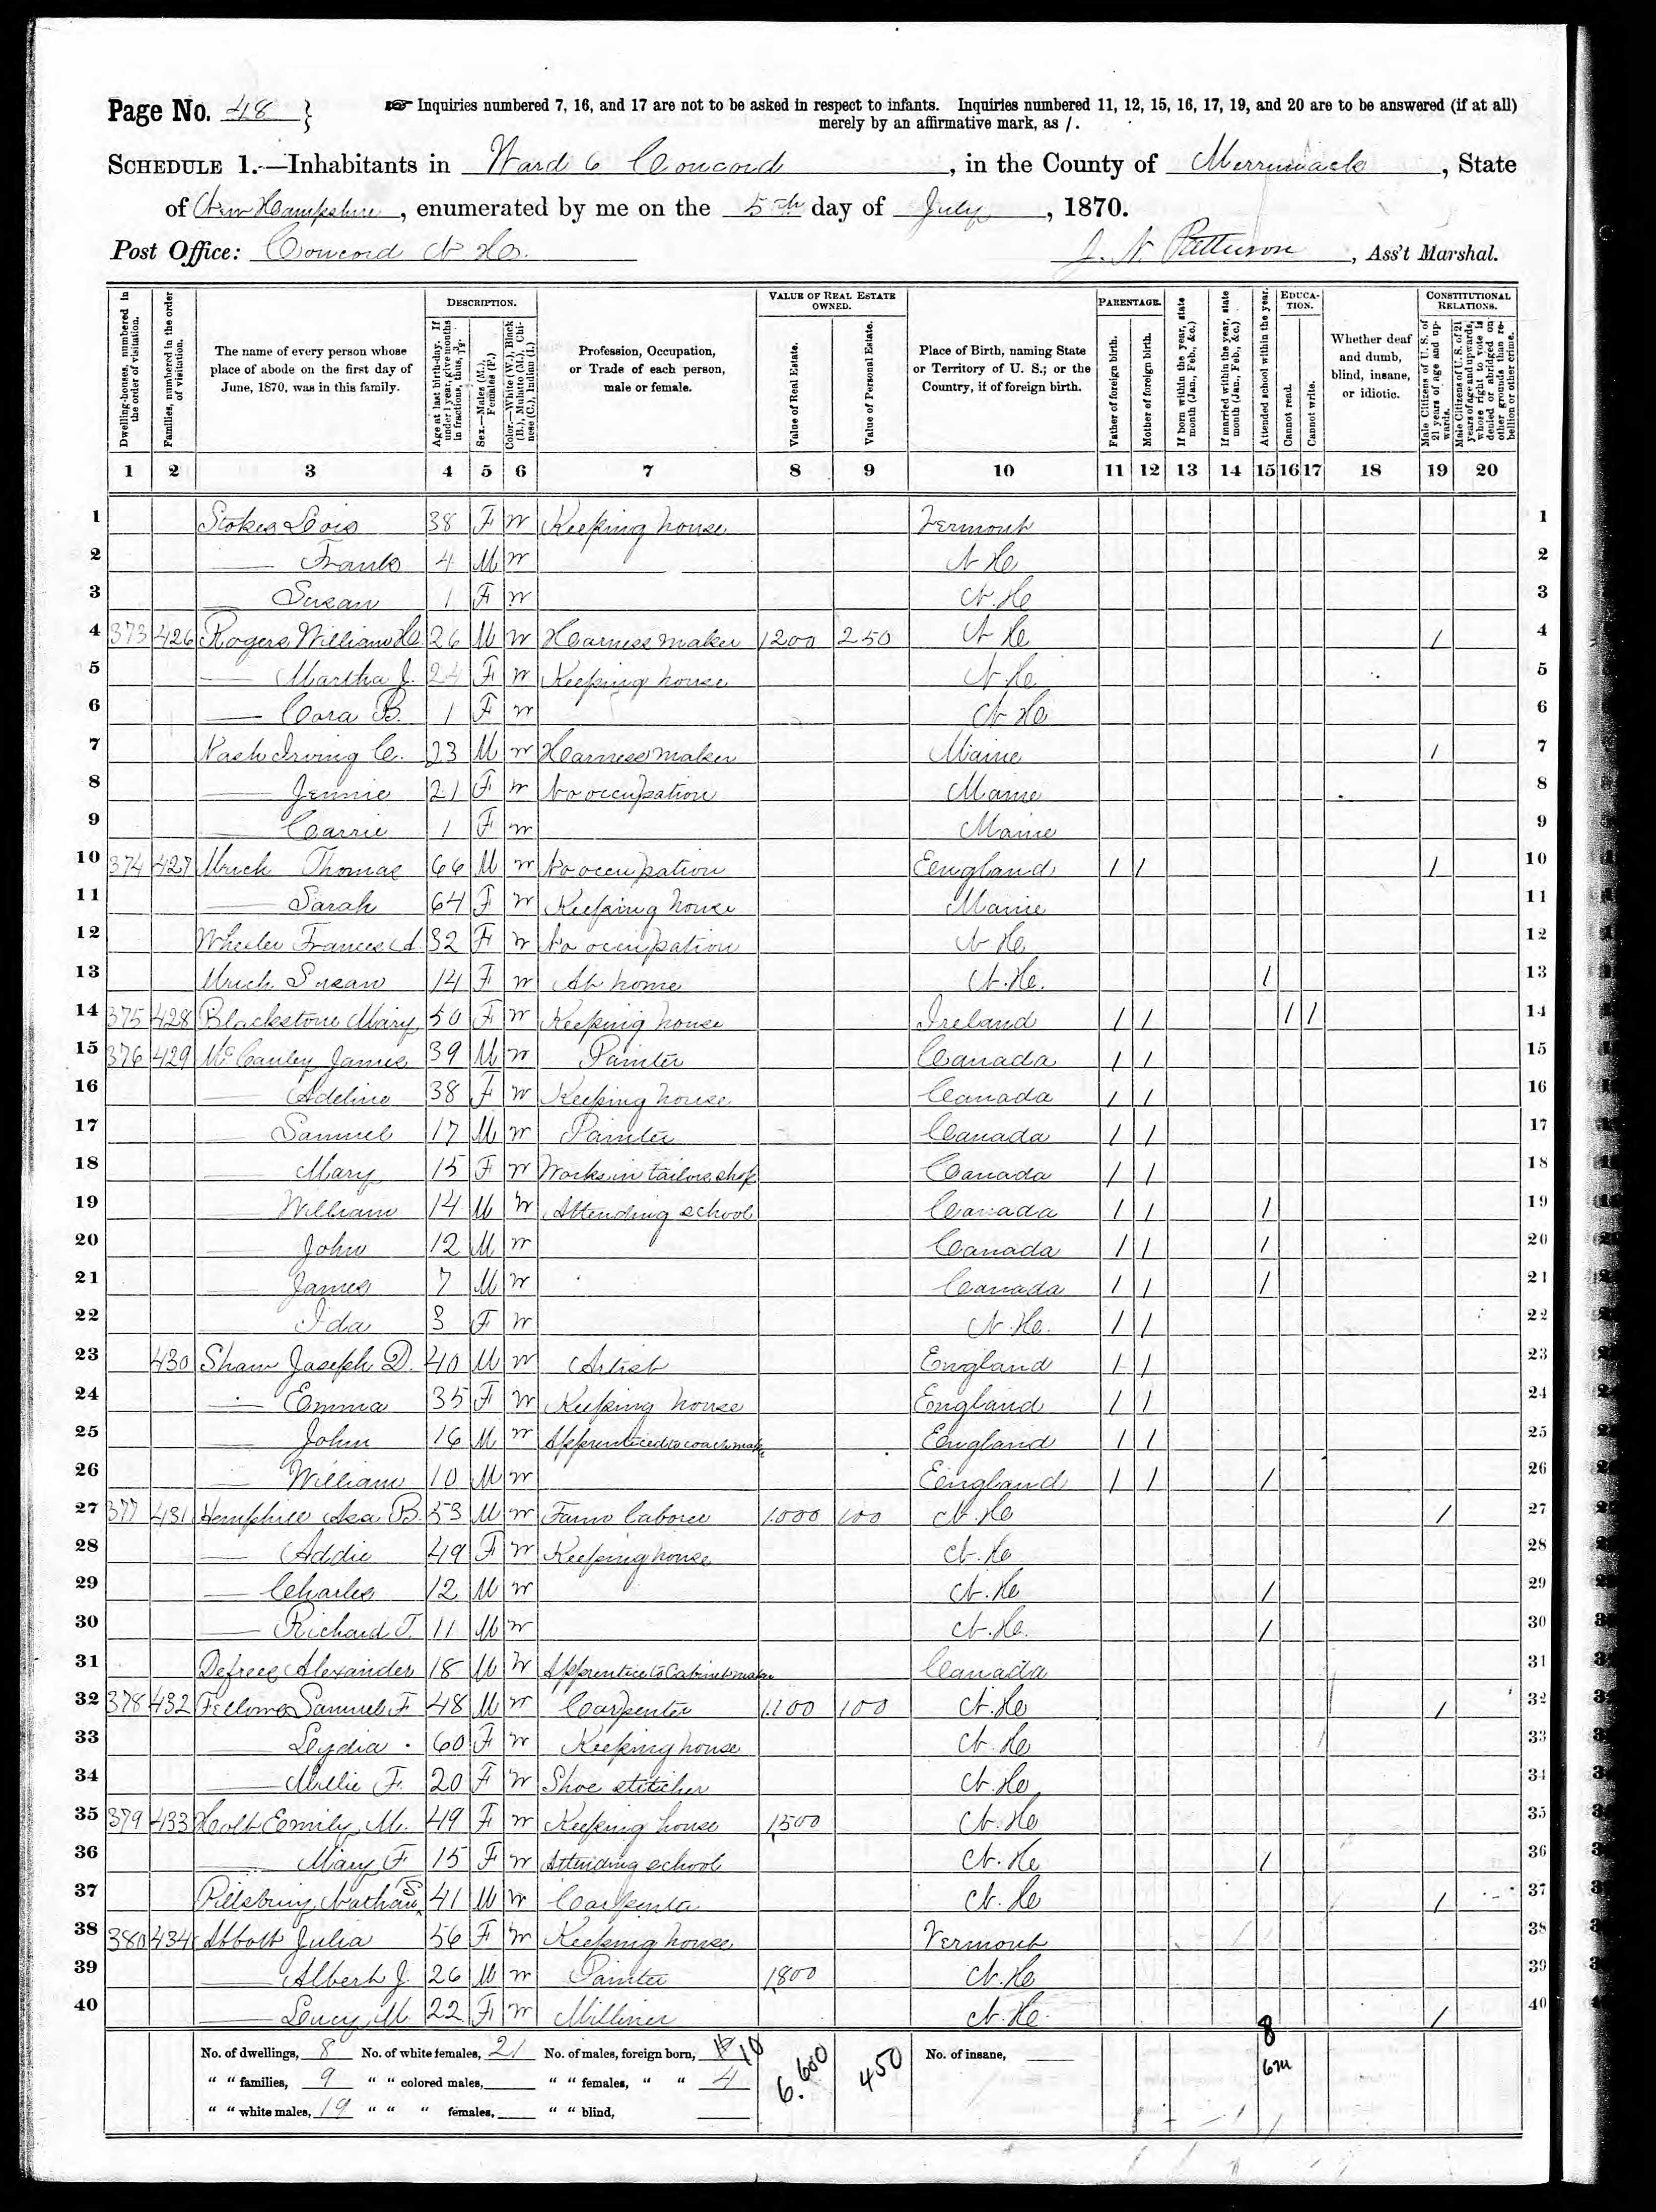 Page No. 48 }
☞ Inquiries numbered 7, 16, and 17 are not to be asked in respect to infants. Inquiries numbered 11, 12, 15, 16, 17, 19, and 20 are to be answered (if at all)
merely by an affirmative mark, as /.
SCHEDULE 1.—Inhabitants in Ward 6 Concord, in the County of Merrimack, State
of New Hampshire, enumerated by me on the 5th day of July, 1870.
Post Office: Concord N H. J. N. Patterson, Ass't Marshal.
Dwelling-houses, numbered in the order of visitation.
Families, numbered in the order of visitation.
The name of every person whose place of abode on the first day of June, 1870, was in this family.
DESCRIPTION.
Age at last birth-day. If under 1 year, give months in fractions, thus, 3/12.
Sex.—Males (M.), Females (F.)
Color.—White (W.), Black (B.), Mulatto (M.), Chinese (C.), Indian (I.)
Profession, Occupation, or Trade of each person, male or female.
VALUE OF REAL ESTATE OWNED.
Value of Real Estate.
Value of Personal Estate.
Place of Birth, naming State or Territory of U. S.; or the Country, if of foreign birth.
PARENTAGE.
Father of foreign birth.
Mother of foreign birth.
If born within the year, state month (Jan., Feb., &c.)
If married within the year, state month (Jan., Feb., &c.)
Attended school within the year.
EDUCATION.
Cannot read.
Cannot write.
Whether deaf and dumb, blind, insane, or idiotic.
CONSTITUTIONAL RELATIONS.
Male Citizens of U. S. of 21 years of age and upwards.
Male Citizens of U. S. of 21 years of age and upwards, whose right to vote is denied or abridged on other grounds than rebellion or other crime.
1 2 3 4 5 6 7 8 9 10 11 12 13 14 15 16 17 18 19 20
1 Stokes Lois 38 F W Keeping house Vermont 1
2 — Frank 4 M W N H 2
3 — Susan 1 F W N. H 3
4 373 426 Rogers William H. 26 M W Harness maker 1200 250 N H / 4
5 — Martha J. 24 F W Keeping house N. H 5
6 — Cora B. 1 F W N H 6
7 Nash Irving C. 23 M W Harness maker Maine / 7
8 — Jennie 21 F W No occupation Maine 8
9 — Carrie 1 F W Maine 9
10 374 427 Thomas 66 M W No occupation England / / / 10
11 — Sarah 64 F W Keeping house Maine 11
12 Wheeler Frances A. 32 F W No occupation N H 12
13 Susan 14 F W At home N. H. / 13
14 375 428 Blackstone Mary 50 F W Keeping house Ireland / / / / 14
15 376 429 McCauley James 39 M W Painter Canada / / 15
16 — Adeline 38 F W Keeping house Canada / / 16
17 — Samuel 17 M W Painter Canada / / 17
18 — Mary 15 F W Works in tailors shop Canada / / 18
19 — William 14 M W Attending school Canada / / / 19
20 — John 12 M W Canada / / / 20
21 — James 7 M W Canada / / / 21
22 — Ida 3 F W N. H. / / 22
23 430 Shaw Joseph D. 40 M W Artist England / / 23
24 — Emma 35 F W Keeping house England / / 24
25 — John 16 M W Apprenticed to coach maker England / / 25
26 — William 10 M W England / / / 26
27 377 431 Hemphill Asa B. 53 M W Farm laborer 1.000 100 N. H / 27
28 — Addie 49 F W Keeping house N. H 28
29 — Charles 12 M W N. H / 29
30 — Richard T. 11 M W N. H. / 30
31 Alexander 18 M W Apprentice to Cabinet maker Canada 31
32 378 432 Fellows Samuel F. 48 M W Carpenter 1.100 100 N. H / 32
33 — Lydia 60 F W Keeping house N. H 33
34 — Millie F. 20 F W Shoe stitcher N. H 34
35 379 433 Holt Emily M. 49 F W Keeping house 1,500 N. H 35
36 — Mary F 15 F W Attending school N. H / 36
37 Pillsbury Nathan S 41 M W Carpenter N. H / 37
38 380 434 Abbott Julia 56 F W Keeping house Vermont 38
39 — Albert J. 26 M W Painter 1,800 N. H 39
40 — Lucy M 22 F W Milliner N. H. / 40
No. of dwellings, 8 No. of white females, 21 No. of males, foreign born, 10 6.600 450 No. of insane, 8
" " families, 9 " " colored males, " " females, " " 4
" " white males, 19 " " " females, " " blind,